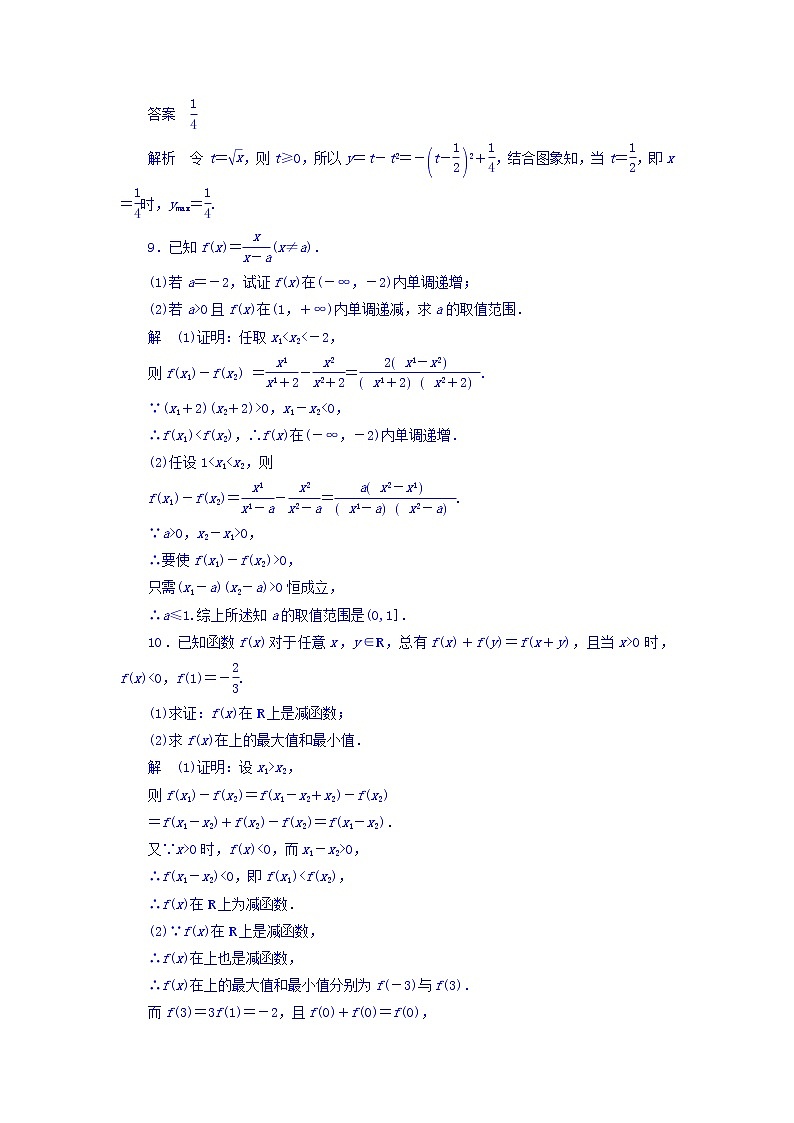 答案 1/4
解析 令 t=√x,则 t≥0,所以 y=t-t²=-(t-1/2)²+1/4,结合图象知,当 t=1/2,即 x
=1/4时,ymax=1/4.
9.已知 f(x)=x/(x-a)(x≠a).
(1)若 a=-2,试证 f(x)在(-∞,-2)内单调递增;
(2)若 a>0 且 f(x)在(1,+∞)内单调递减,求 a 的取值范围.
解 (1)证明:任取 x₁<x₂<-2,
则 f(x₁)-f(x₂) =x1/(x1+2)-x2/(x2+2)=2( x1-x2)/( x1+2) ( x2+2) .
∵(x₁+2)(x₂+2)>0,x₁-x₂<0,
∴f(x₁)<f(x₂),∴f(x)在(-∞,-2)内单调递增.
(2)任设 1<x₁<x₂,则
f(x₁)-f(x₂)=x1/(x1-a)-x2/(x2-a)=a( x2-x1)/( x1-a) ( x2-a) .
∵a>0,x₂-x₁>0,
∴要使 f(x₁)-f(x₂)>0,
只需(x₁-a)(x₂-a)>0 恒成立,
∴a≤1.综上所述知 a 的取值范围是(0,1].
10.已知函数 f(x)对于任意 x,y∈R,总有 f(x)+f(y)=f(x+y),且当 x>0 时,
f(x)<0,f(1)=-2/3.
(1)求证:f(x)在 R 上是减函数;
(2)求 f(x)在上的最大值和最小值.
解 (1)证明:设 x₁>x₂,
则 f(x₁)-f(x₂)=f(x₁-x₂+x₂)-f(x₂)
=f(x₁-x₂)+f(x₂)-f(x₂)=f(x₁-x₂).
又∵x>0 时,f(x)<0,而 x₁-x₂>0,
∴f(x₁-x₂)<0,即 f(x₁)<f(x₂),
∴f(x)在 R 上为减函数.
(2)∵f(x)在 R 上是减函数,
∴f(x)在上也是减函数,
∴f(x)在上的最大值和最小值分别为 f(-3)与 f(3).
而 f(3)=3f(1)=-2,且 f(0)+f(0)=f(0),